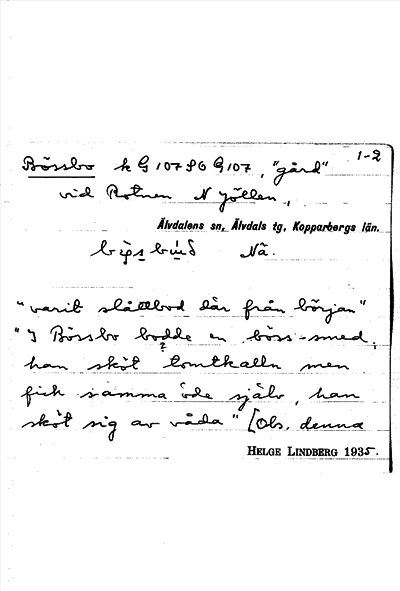 1-2
Bössbo k G 107 SO G 107, "gård"
vid Rotnen N Jöllen,
Älvdalens sn, Älvdals tg, Kopparbergs län.
Nä.
"varit slåttbod där från början"
"I Bössbo bodde en böss-smed,
han sköt tomtkalln men
?
fick samma öde själv, han
sköt sig av våda" [Obs. denna
HELGE LINDBERG 1935.